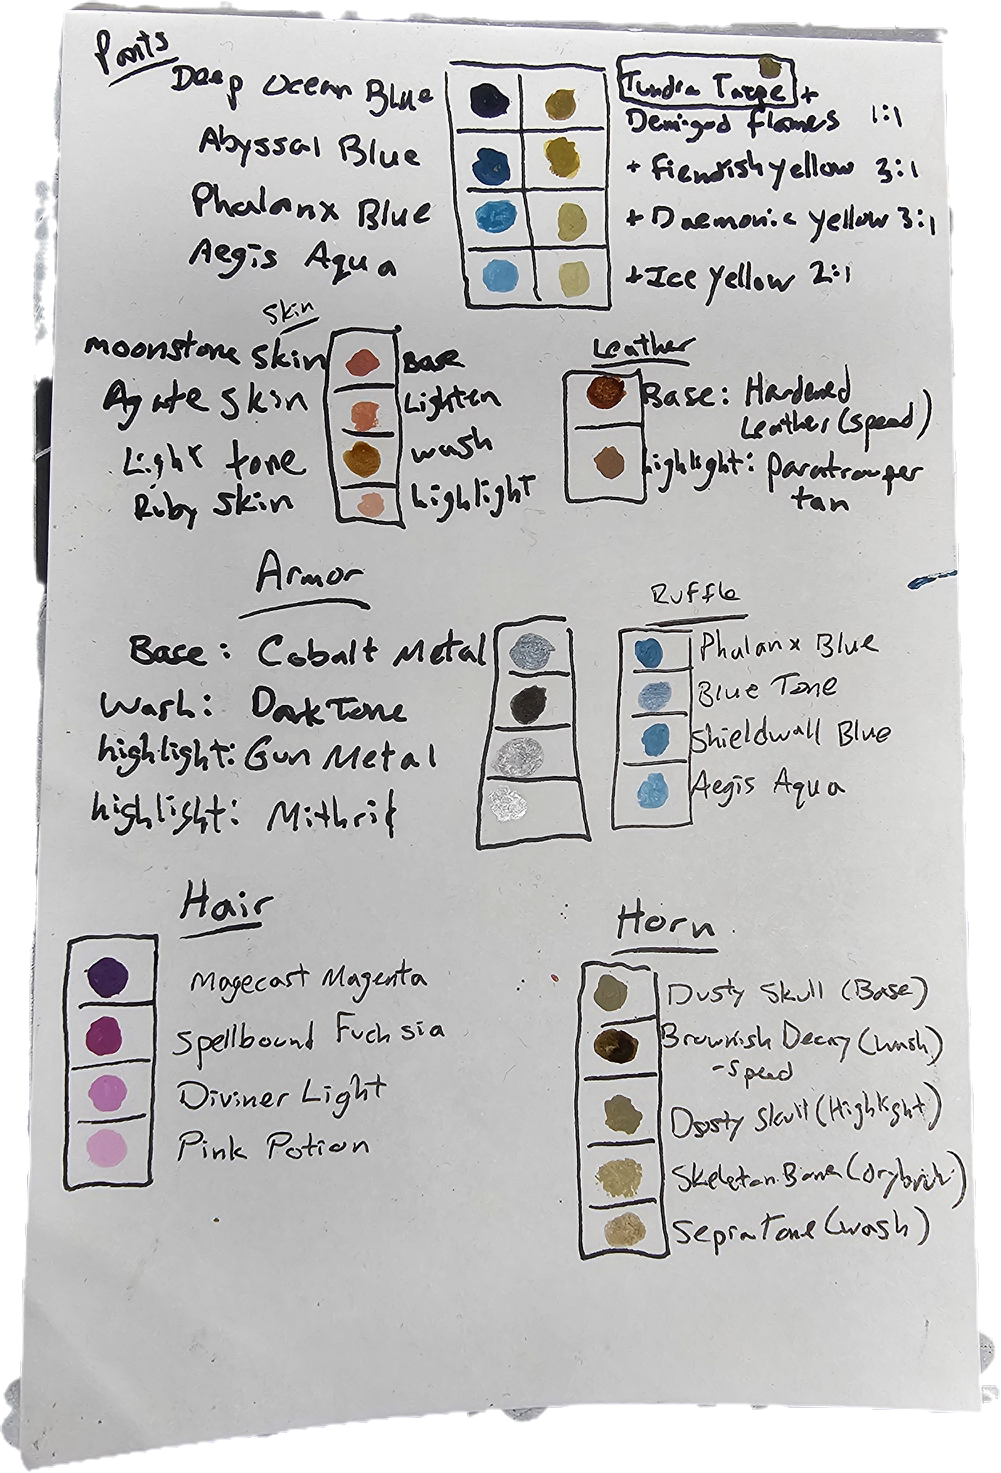 Pants
Deep Ocean Blue
Abyssal Blue
Phalanx Blue
Aegis Aqua
Tundra Taupe +
Demigod flames 1:1
+ Fiendish yellow 3:1
+ Daemonic yellow 3:1
+ Ice yellow 2:1
Skin
moonstone skin Base
Agate skin Lighten
Light tone wash
Ruby skin highlight
Leather
Base: Hardened
Leather (speed)
highlight: paratrooper
tan
Armor
Base: Cobalt Metal
Wash: Dark Tone
highlight: Gun Metal
highlight: Mithril
Ruffle
Phalanx Blue
Blue Tone
Shieldwall Blue
Aegis Aqua
Hair
Magecast Magenta
Spellbound Fuchsia
Diviner Light
Pink Potion
Horn
Dusty Skull (Base)
Brownish Decay (wash)
-speed
Dusty Skull (Highlight)
Skeleton Bone (drybrush)
Sepia Tone (wash)